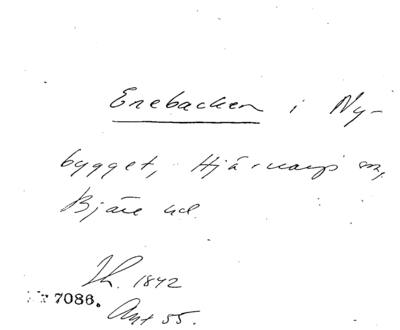 Enebacken i Ny-
bygget, Hjärnarps sn,
Bjäre hd.
Th. 1842
Nr 7086.
Ant 55.